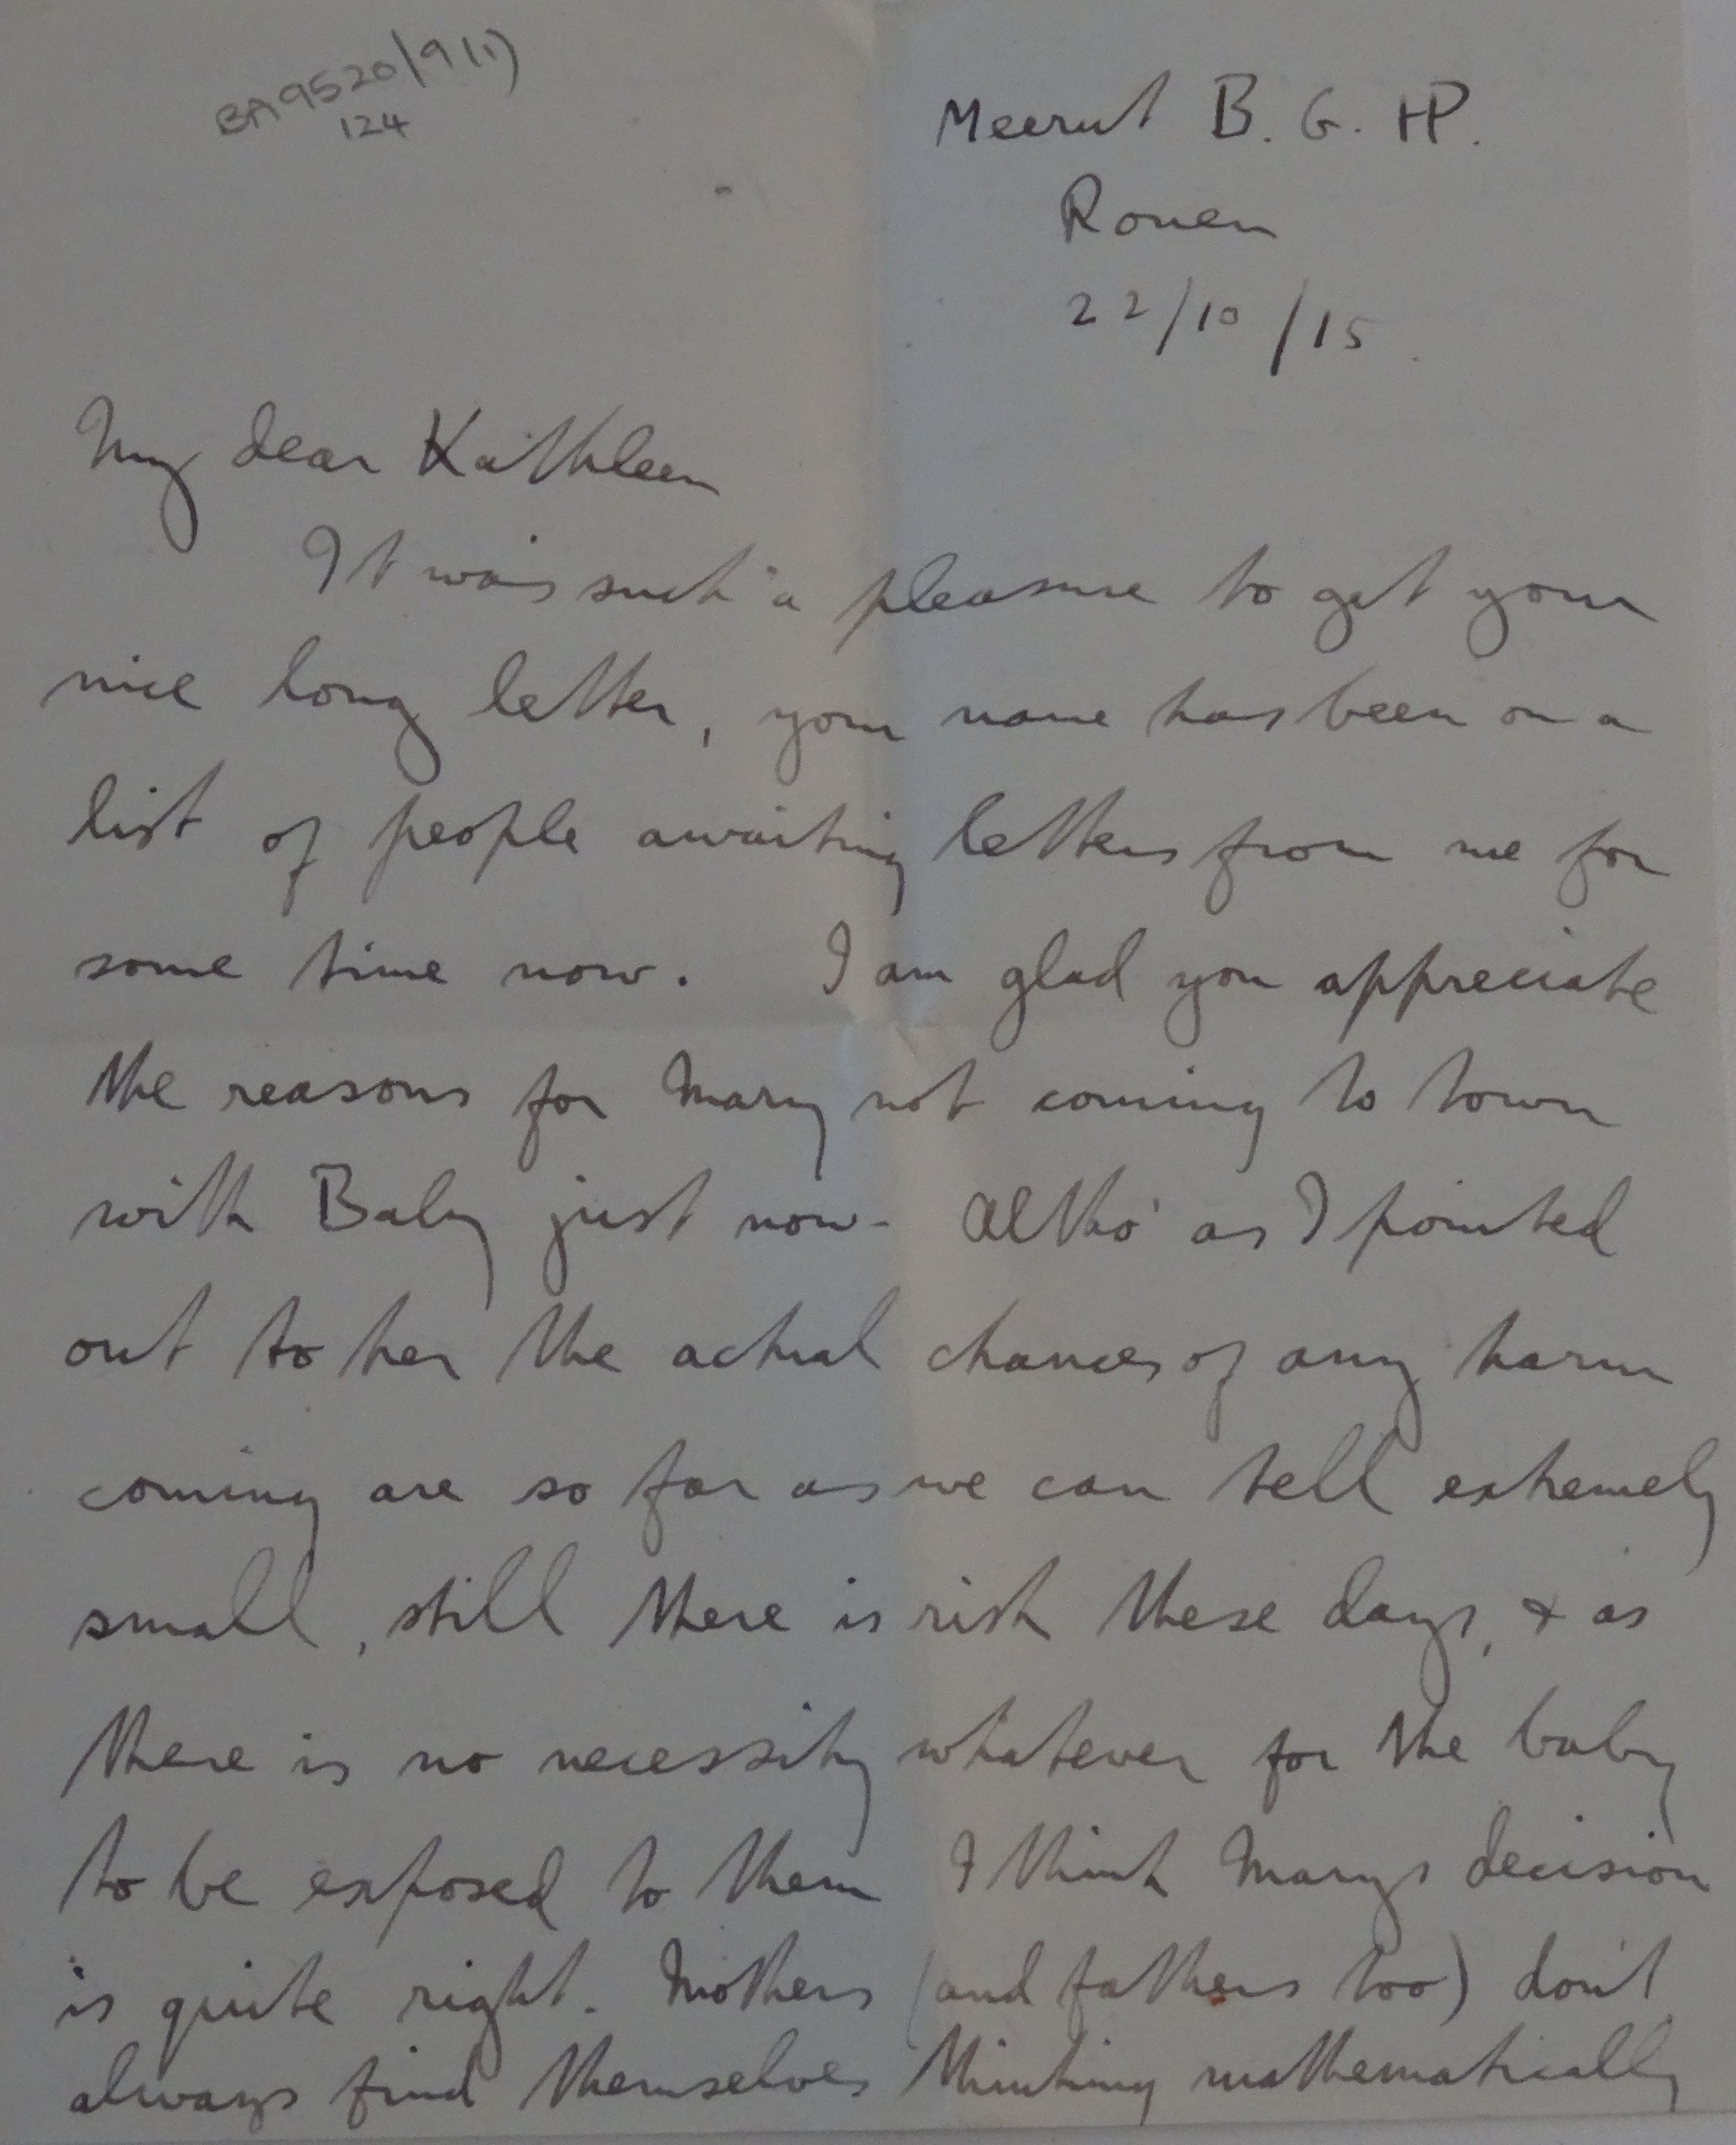 BA9520/9(1)
124
Meerut B. G. HP.
Rouen
22/10/15.
My dear Kathleen
It was such a pleasure to get your
nice long letter, your name has been on a
list of people awaiting letters from me for
some time now. I am glad you appreciate
the reasons for Mary not coming to town
with Baby just now - altho' as I pointed
out to her the actual chances of any harm
coming are so far as we can tell extremely
small, still there is risk these days, & as
there is no necessity whatever for the baby
to be exposed to them I think Marys decision
is quite right. Mothers (and fathers too) don't
always find themselves thinking mathematically